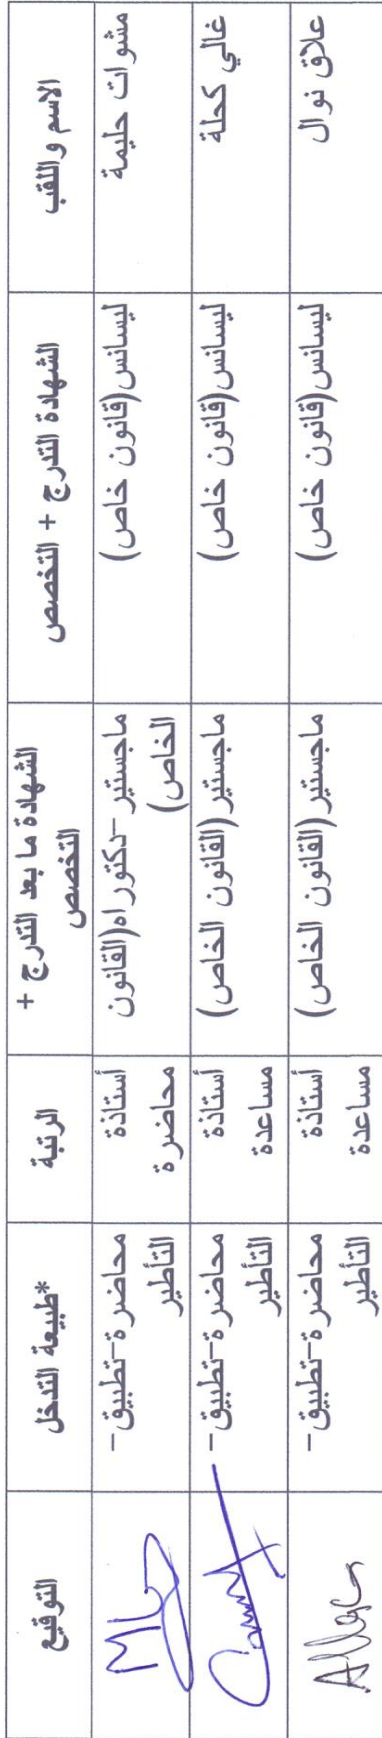 الاسم واللقب
الشهادة التدرج + التخصص
الشهادة ما بعد التدرج +
التخصص
الرتبة
*طبيعة التدخل
التوقيع
مشوات حليمة
ليسانس(قانون خاص)
ماجستير -دكتوراه(القانون
الخاص)
أستاذة
محاضرة
محاضرة-تطبيق-
التأطير
غالي كحلة
ليسانس(قانون خاص)
ماجستير(القانون الخاص)
أستاذة
مساعدة
محاضرة-تطبيق-
التأطير
علاق نوال
ليسانس(قانون خاص)
ماجستير(القانون الخاص)
أستاذة
مساعدة
محاضرة-تطبيق-
التأطير